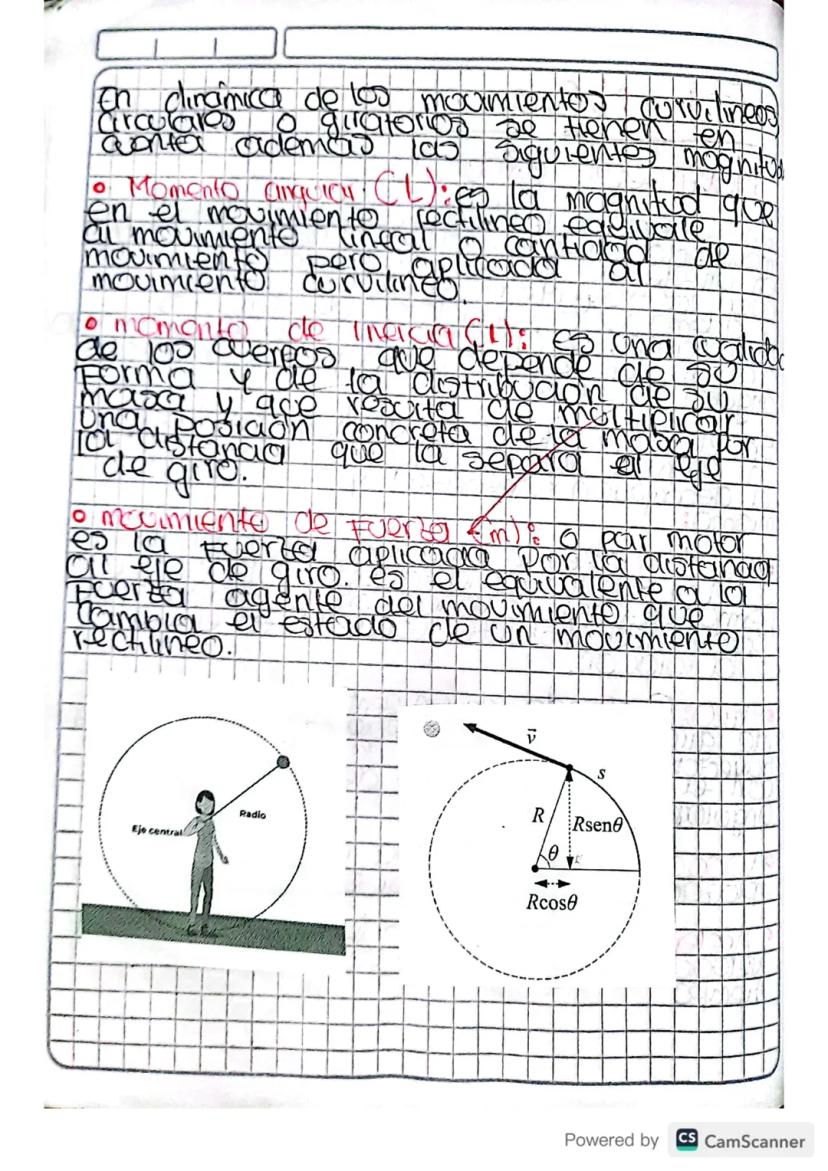 En dinámica de los movimientos curvilineos
circulares o giratorios se tienen en
cuenta ademas las siguientes magnitud
• Momento angular (L): es la magnitud que
en el movimiento rectilineo equivale
al movimiento lineal o cantidad de
movimiento pero aplicada al
movimiento curvilineo.
• momento de Inercia (I): es una cualida
de los cuerpos que depende de su
forma y de la distribución de su
masa y que resulta de multiplicar
una posición concreta de la masa por
la distancia que la separa al eje
de giro.
• movimiento de Fuerza (m): o par motor
es la fuerza aplicada por la distancia
al eje de giro. es el equivalente a la
fuerza agente del movimiento que
cambia el estado de un movimiento
rectilineo.
Radio
Eje central
v⃗
s
R
Rsenθ
θ
Rcosθ
Powered by CS CamScanner